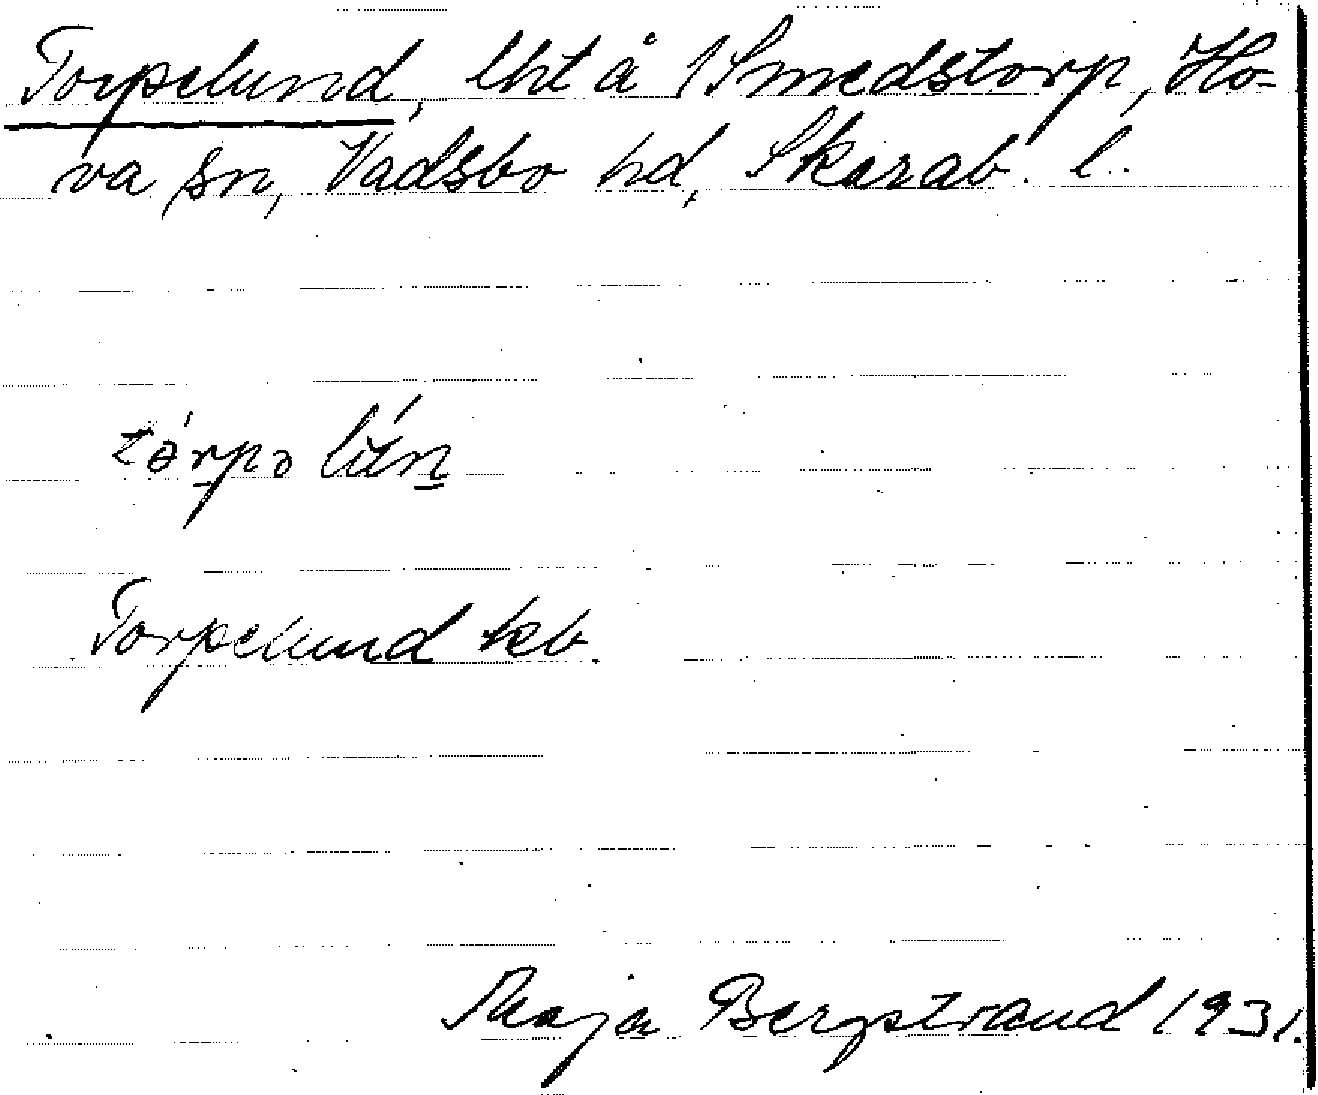 Torpelund, lht å 1 Smedstorp, Ho-
va sn, Vadsbo hd, Skarab. l.
tɵ́rpə lɯ́n
Torpelund kb.
Maja Bergstrand 1931.